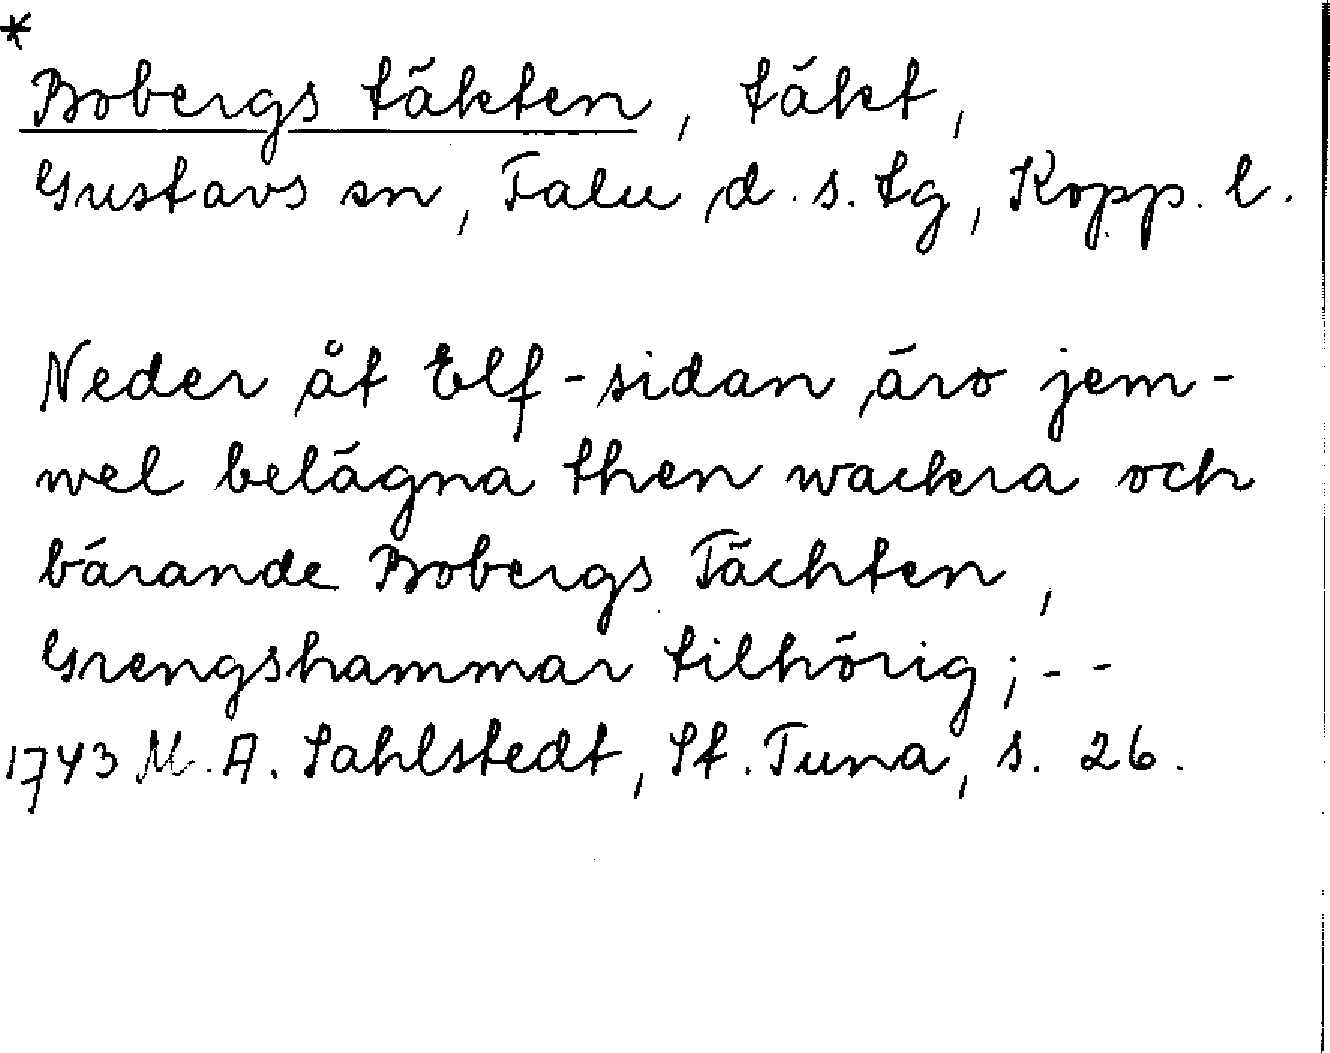 *
Bobergs täkten, täkt,
Gustavs sn, Falu d. s. tg, Kopp. l.
Neder åt Elf-sidan äro jem-
wel belägna then wackra och
bärande Bobergs Tächten,
Grengshammar tilhörig; - -
1743 M. A. Sahlstedt, St. Tuna, s. 26.